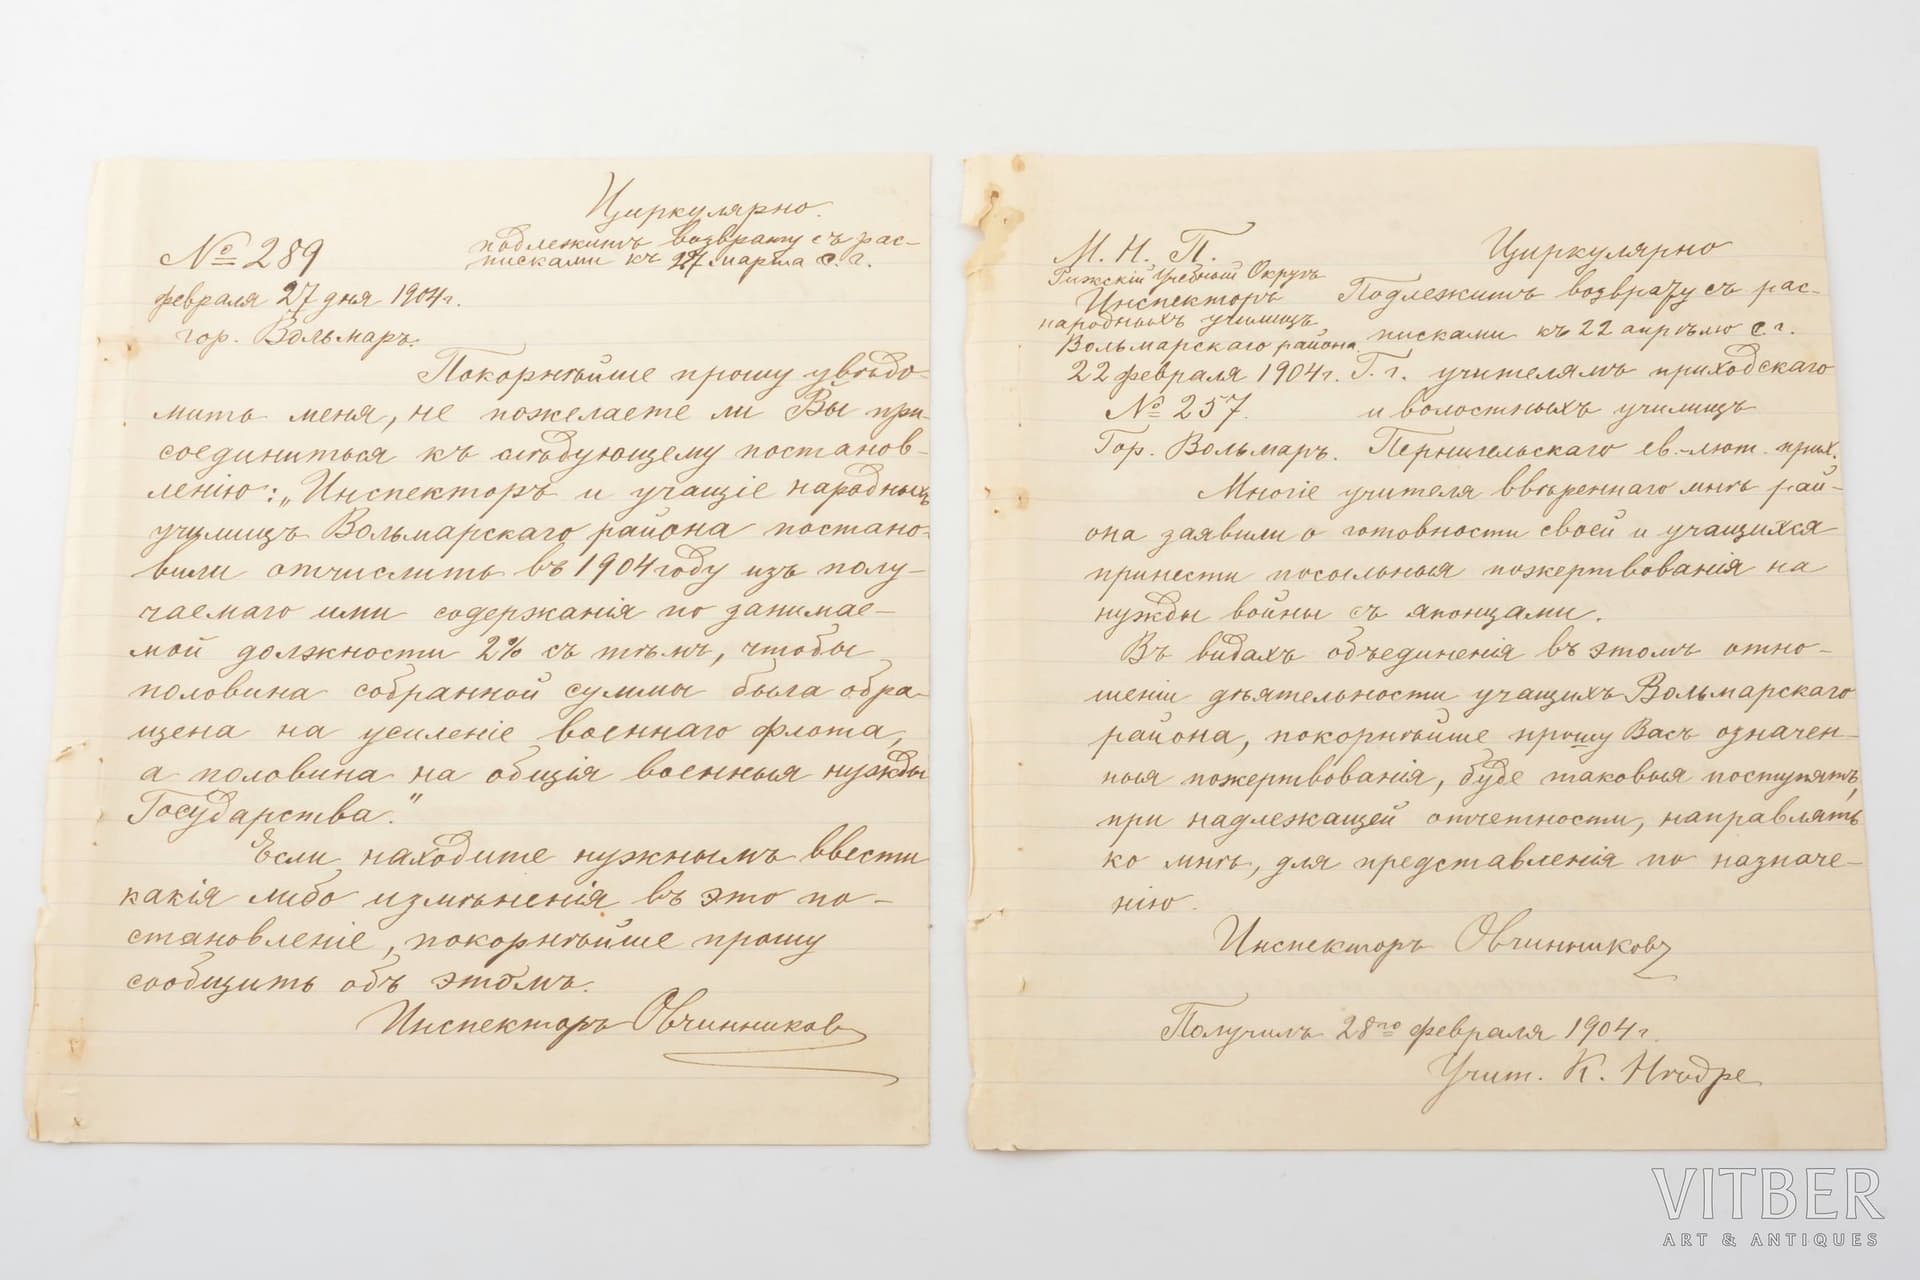 Циркулярно.
№ 289
подлежитъ возврату съ рас-
писками къ 27 марта с. г.
февраля 27 дня 1904 г.
гор. Вольмаръ.
Покорнѣйше прошу увѣдо-
мить меня, не пожелаете ли Вы при-
соединиться къ слѣдующему постанов-
ленію: „Инспекторъ и учащіе народныхъ
училищъ Вольмарскаго района постано-
вили отчислить въ 1904 году изъ полу-
чаемаго ими содержанія по занимае-
мой должности 2% съ тѣмъ, чтобы
половина собранной суммы была обра-
щена на усиленіе военнаго флота,
а половина на общія военныя нужды
Государства."
Если находите нужнымъ ввести
какія либо измѣненія въ это по-
становленіе, покорнѣйше прошу
сообщить объ этомъ.
Инспекторъ Овчинниковъ
М. Н. П.
Рижскій Учебный Округъ
Инспекторъ
народныхъ училищъ
Вольмарскаго района
22 февраля 1904 г.
№ 257.
Гор. Вольмаръ.
Циркулярно
Подлежитъ возврату съ рас-
писками къ 22 апрѣлю с. г.
Г. г. учителямъ приходскаго
и волостныхъ училищъ
Пернигельскаго ев.-лют. прих.
Многіе учителя ввѣреннаго мнѣ рай-
она заявили о готовности своей и учащихся
принести посильныя пожертвованія на
нужды войны съ японцами.
Въ видахъ объединенія въ этомъ отно-
шеніи дѣятельности учащихъ Вольмарскаго
района, покорнѣйше прошу Васъ означен-
ныя пожертвованія, буде таковыя поступятъ,
при надлежащей отчетности, направлять
ко мнѣ, для представленія по назначе-
нію.
Инспекторъ Овчинниковъ
Получилъ 28го февраля 1904 г.
Учит. К. Нѣдре
VITBER
ART & ANTIQUES